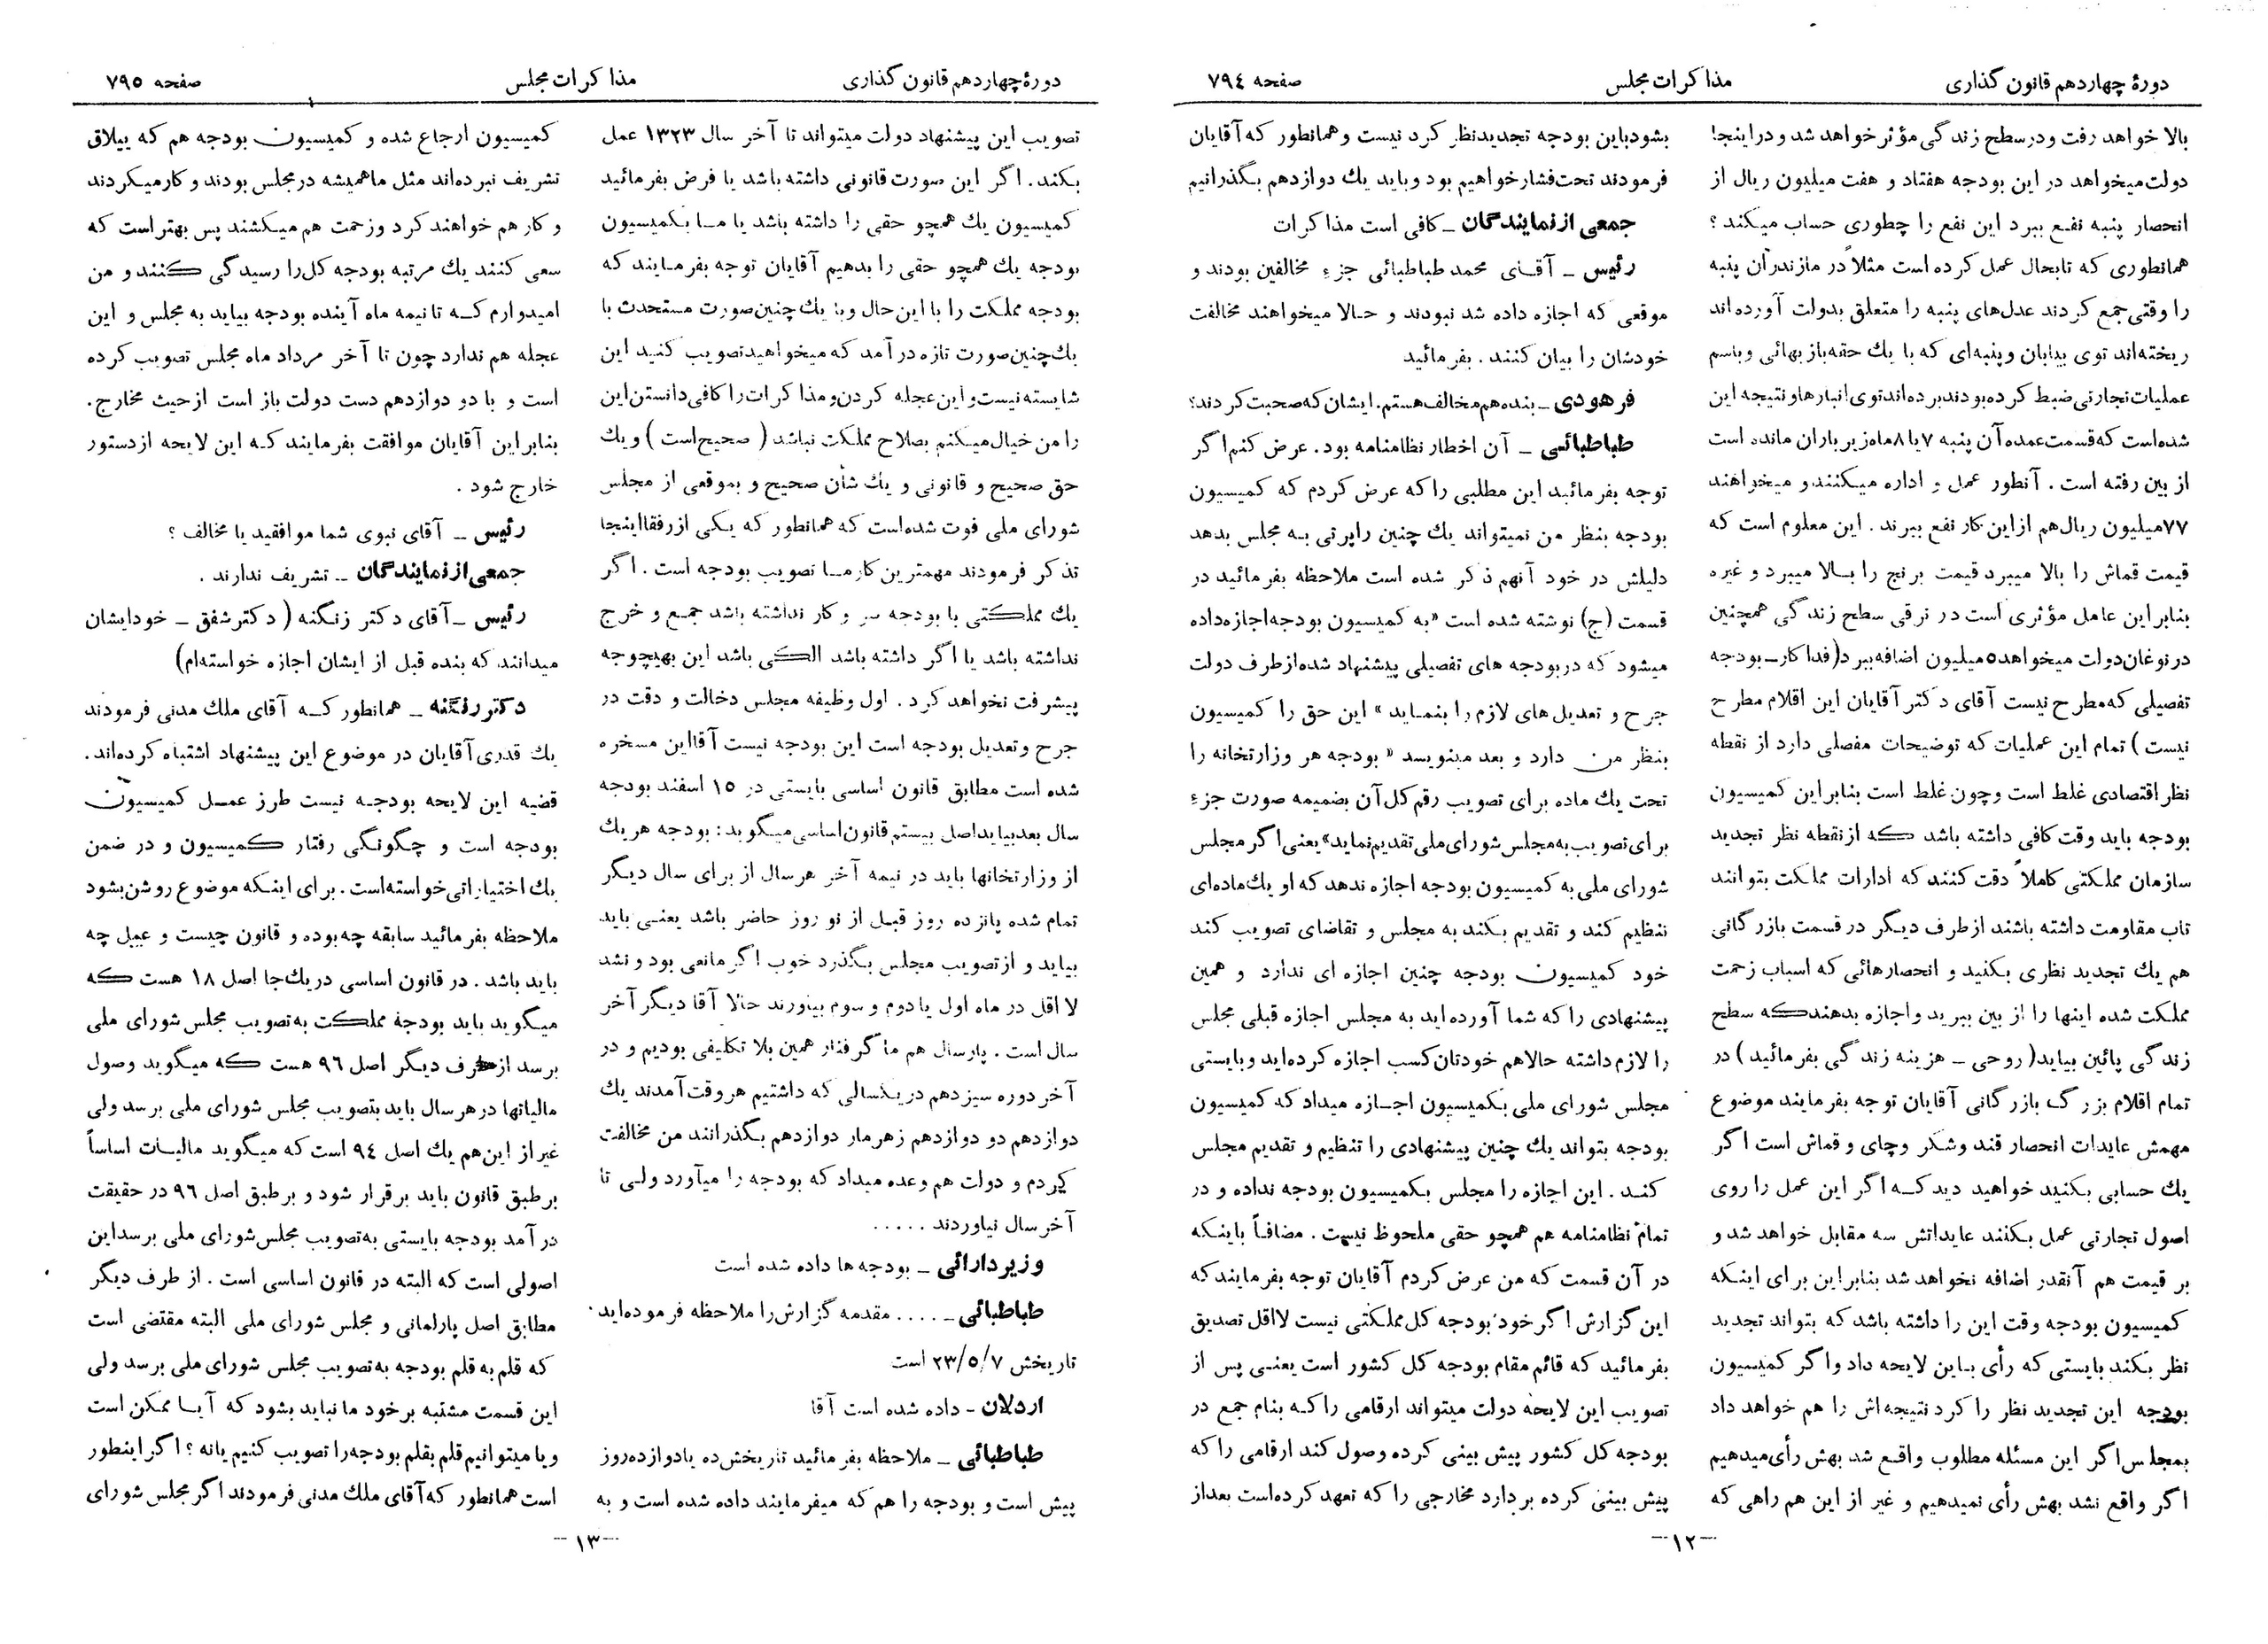 دورهٔ چهاردهم قانون گذاری
مذاکرات مجلس
صفحه ۷۹٤
بالا خواهد رفت ودرسطح زندگی مؤثر خواهد شد ودراینجا
دولت میخواهد در این بودجه هفتاد و هفت میلیون ریال از
انحصار پنبه نفع ببرد این نفع را چطوری حساب میکند ؟
همانطوری که تابحال عمل کرده است مثلاً در مازندران پنبه
را وقتی جمع کردند عدل‌های پنبه را متعلق بدولت آورده‌اند
ریخته‌اند توی بیابان وپنبه‌ای که با یك حقه‌بازیهائی وباسم
عملیات تجارتی ضبط کرده بودند برده‌اند توی انبارها ونتیجه این
شده‌است که قسمت عمده آن پنبه ۷ یا ۸ ماه زیر باران مانده است
از بین رفته است . آنطور عمل و اداره میکنند و میخواهند
۷۷میلیون ریال هم ازاین کار نفع ببرند . این معلوم است که
قیمت قماش را بالا میبرد قیمت برنج را بالا میبرد و غیره
بنابراین عامل مؤثری است در ترقی سطح زندگی همچنین
درنوغان دولت میخواهد ٥ میلیون اضافه ببرد (فداکار ـ بودجه
تفصیلی که مطرح نیست آقای دکتر آقایان این اقلام مطرح
نیست ) تمام این عملیات که توضیحات مفصلی دارد از نقطه
نظر اقتصادی غلط است وچون غلط است بنابراین کمیسیون
بودجه باید وقت کافی داشته باشد که ازنقطه نظر تجدید
سازمان مملکتی کاملاً دقت کنند که ادارات مملکت بتوانند
تاب مقاومت داشته باشند ازطرف دیگر در قسمت بازرگانی
هم یك تجدید نظری بکنید و انحصارهائی که اسباب زحمت
مملکت شده اینها را از بین ببرید واجازه بدهند که سطح
زندگی پائین بیاید ( روحی ـ هزینه زندگی بفرمائید ) در
تمام اقلام بزرگ بازرگانی آقایان توجه بفرمایند موضوع
مهمش عایدات انحصار قند وشکر وچای و قماش است اگر
یك حسابی بکنید خواهید دید که اگر این عمل را روی
اصول تجارتی عمل بکنند عایداتش سه مقابل خواهد شد و
بر قیمت هم آنقدر اضافه نخواهد شد بنابراین برای اینکه
کمیسیون بودجه وقت این را داشته باشد که بتواند تجدید
نظر بکند بایستی که رأی باین لایحه داد واگر کمیسیون
بودجه این تجدید نظر را کرد نتیجه‌اش را هم خواهد داد
بمجلس اگر این مسئله مطلوب واقع شد بهش رأی میدهیم
اگر واقع نشد بهش رأی نمیدهیم و غیر از این هم راهی که
بشود باین بودجه تجدیدنظر کرد نیست وهمانطور که آقایان
فرمودند تحت فشار خواهیم بود وباید یك دوازدهم بگذرانیم
جمعی از نمایندگان ـ کافی است مذاکرات
رئیس ـ آقای محمد طباطبائی جزء مخالفین بودند و
موقعی که اجازه داده شد نبودند و حالا میخواهند مخالفت
خودشان را بیان کنند . بفرمائید
فرهودی ـ بنده هم مخالف هستم. ایشان که صحبت کردند؟
طباطبائی ـ آن اخطار نظامنامه بود. عرض کنم اگر
توجه بفرمائید این مطلبی را که عرض کردم که کمیسیون
بودجه بنظر من نمیتواند یك چنین راپرتی به مجلس بدهد
دلیلش در خود آنهم ذکر شده است ملاحظه بفرمائید در
قسمت (ج) نوشته شده است «به کمیسیون بودجه اجازه داده
میشود که دربودجه های تفصیلی پیشنهاد شده ازطرف دولت
جرح و تعدیل‌های لازم را بنماید » این حق را کمیسیون
بنظر من دارد و بعد مینویسد « بودجه هر وزارتخانه را
تحت یك ماده برای تصویب رقم کل آن بضمیمه صورت جزء
برای تصویب به مجلس شورای ملی تقدیم نماید» یعنی اگر مجلس
شورای ملی به کمیسیون بودجه اجازه ندهد که او یك ماده‌ای
تنظیم کند و تقدیم بکند به مجلس و تقاضای تصویب کند
خود کمیسیون بودجه چنین اجازه ای ندارد و همین
پیشنهادی را که شما آورده اید به مجلس اجازه قبلی مجلس
را لازم داشته حالاهم خودتان کسب اجازه کرده‌اید وبایستی
مجلس شورای ملی بکمیسیون اجازه میداد که کمیسیون
بودجه بتواند یك چنین پیشنهادی را تنظیم و تقدیم مجلس
کند . این اجازه را مجلس بکمیسیون بودجه نداده و در
تمام نظامنامه هم همچو حقی ملحوظ نیست . مضافاً باینکه
در آن قسمت که من عرض کردم آقایان توجه بفرمایند که
این گزارش اگر خود بودجه کل مملکتی نیست لااقل تصدیق
بفرمائید که قائم مقام بودجه کل کشور است یعنی پس از
تصویب این لایحه دولت میتواند ارقامی را که بنام جمع در
بودجه کل کشور پیش بینی کرده وصول کند ارقامی را که
پیش بینی کرده بردارد مخارجی را که تعهد کرده‌است بعداز
ـ۱۲ـ
دورهٔ چهاردهم قانون گذاری
مذاکرات مجلس
صفحه ۷۹٥
تصویب این پیشنهاد دولت میتواند تا آخر سال ۱۳۲۳ عمل
بکند. اگر این صورت قانونی داشته باشد یا فرض بفرمائید
کمیسیون یك همچو حقی را داشته باشد یا ما بکمیسیون
بودجه یك همچو حقی را بدهیم آقایان توجه بفرمایند که
بودجه مملکت را با این حال وبا یك چنین صورت مستحدث با
یك چنین صورت تازه درآمد که میخواهید تصویب کنید این
شایسته نیست واین عجله کردن و مذاکرات را کافی دانستن این
را من خیال میکنم بصلاح مملکت نباشد ( صحیح است ) و یك
حق صحیح و قانونی و یك شأن صحیح و بموقعی از مجلس
شورای ملی فوت شده‌است که همانطور که یکی از رفقا اینجا
تذکر فرمودند مهمترین کار ما تصویب بودجه است . اگر
یك مملکتی با بودجه سر و کار نداشته باشد جمع و خرج
نداشته باشد یا اگر داشته باشد الکی باشد این بهیچوجه
پیشرفت نخواهد کرد . اول وظیفه مجلس دخالت و دقت در
جرح وتعدیل بودجه است این بودجه نیست آقا این مسخره
شده است مطابق قانون اساسی بایستی در ۱٥ اسفند بودجه
سال بعد بیاید اصل بیستم قانون اساسی میگوید: بودجه هر یك
از وزارتخانها باید در نیمه آخر هرسال از برای سال دیگر
تمام شده پانزده روز قبل از نوروز حاضر باشد یعنی باید
بیاید و از تصویب مجلس بگذرد خوب اگر مانعی بود و نشد
لااقل در ماه اول یا دوم و سوم بیاورند حالا آقا دیگر آخر
سال است . پارسال هم ما گرفتار همین بلا تکلیفی بودیم و در
آخر دوره سیزدهم دریکسالی که داشتیم هروقت آمدند یك
دوازدهم دو دوازدهم زهرمار دوازدهم بگذرانند من مخالفت
کردم و دولت هم وعده میداد که بودجه را میآورد ولی تا
آخر سال نیاوردند . . . . .
وزیردارائی ـ بودجه ها داده شده است
طباطبائی ـ . . . . مقدمه گزارش را ملاحظه فرموده‌اید .
تاریخش ۲۳/٥/۷ است
اردلان ـ داده شده است آقا
طباطبائی ـ ملاحظه بفرمائید تاریخش ده یا دوازده روز
پیش است و بودجه را هم که میفرمایند داده شده است و به
کمیسیون ارجاع شده و کمیسیون بودجه هم که ییلاق
تشریف نبرده‌اند مثل ما همیشه درمجلس بودند و کارمیکردند
و کار هم خواهند کرد وزحمت هم میکشند پس بهتر است که
سعی کنند یك مرتبه بودجه کل را رسیدگی کنند و من
امیدوارم که تا نیمه ماه آینده بودجه بیاید به مجلس و این
عجله هم ندارد چون تا آخر مرداد ماه مجلس تصویب کرده
است و با دو دوازدهم دست دولت باز است ازحیث مخارج.
بنابراین آقایان موافقت بفرمایند که این لایحه ازدستور
خارج شود .
رئیس ـ آقای نبوی شما موافقید یا مخالف ؟
جمعی از نمایندگان ـ تشریف ندارند .
رئیس ـ آقای دکتر زنگنه ( دکترشفق ـ خودایشان
میدانند که بنده قبل از ایشان اجازه خواسته‌ام)
دکتر زنگنه ـ همانطور که آقای ملك مدنی فرمودند
یك قدری آقایان در موضوع این پیشنهاد اشتباه کرده‌اند.
قضیه این لایحه بودجه نیست طرز عمل کمیسیون
بودجه است و چگونگی رفتار کمیسیون و در ضمن
یك اختیاراتی خواسته‌است. برای اینکه موضوع روشن بشود
ملاحظه بفرمائید سابقه چه بوده و قانون چیست و عمل چه
باید باشد . در قانون اساسی در یك جا اصل ۱۸ هست که
میگوید باید بودجهٔ مملکت به تصویب مجلس شورای ملی
برسد ازطرف دیگر اصل ۹٦ هست که میگوید وصول
مالیاتها در هرسال باید بتصویب مجلس شورای ملی برسد ولی
غیر از این هم یك اصل ۹٤ است که میگوید مالیات اساساً
برطبق قانون باید برقرار شود و برطبق اصل ۹٦ در حقیقت
درآمد بودجه بایستی به تصویب مجلس شورای ملی برسد این
اصولی است که البته در قانون اساسی است . از طرف دیگر
مطابق اصل پارلمانی و مجلس شورای ملی البته مقتضی است
که قلم به قلم بودجه به تصویب مجلس شورای ملی برسد ولی
این قسمت مشتبه برخود ما نباید بشود که آیا ممکن است
ویا میتوانیم قلم بقلم بودجه را تصویب کنیم یانه ؟ اگر اینطور
است همانطور که آقای ملك مدنی فرمودند اگر مجلس شورای
ـ۱۳ـ